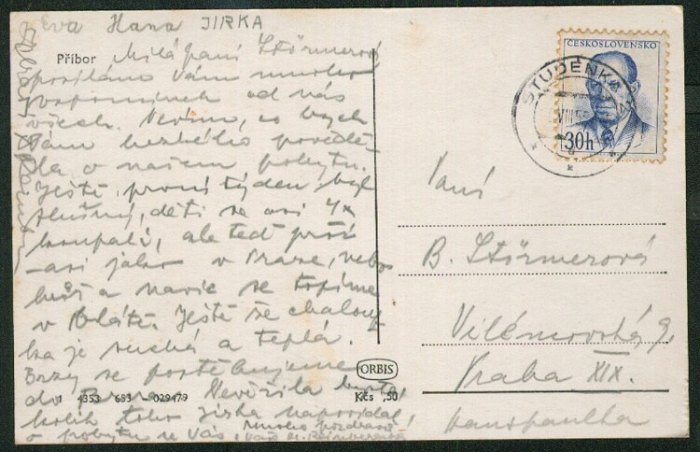 Eva Hana JIRKA
Příbor
Milá paní Störmerová
posíláme Vám mnoho
vzpomínek od nás
všech. Nevím, co bych
Vám hezkého pověděla
o našem pobytu.
Ještě první týden byl
slušný, děti se asi 4x
koupali, ale teď prší
asi jako v Praze, neboť
a navíc se topíme
v blátě. Ještě že chaloupka
je suchá a teplá.
Brzy se postěhujeme
do Brna. Nevěřila byste,
kolik toho Jirka napovídal
o pobytu se Vás.
Mnoho pozdravů
Vaše
ČESKOSLOVENSKO
30h
STUDÉNKA
VIII
Paní
B. Störmerová
Vilémovská 9,
Praha XIX.
Hanspaulka
ORBIS
1 4353 683 029479
Kčs ,50